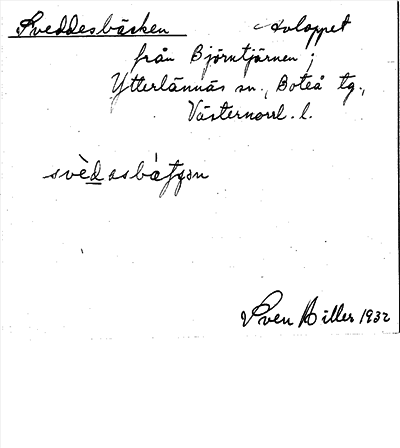 Sveddesbäcken avloppet
från Björntjärnen ;
Ytterlännäs sn., Boteå tg.,
Västernorrl. l.
svèdasbátɟən
Sven Hiller 1932